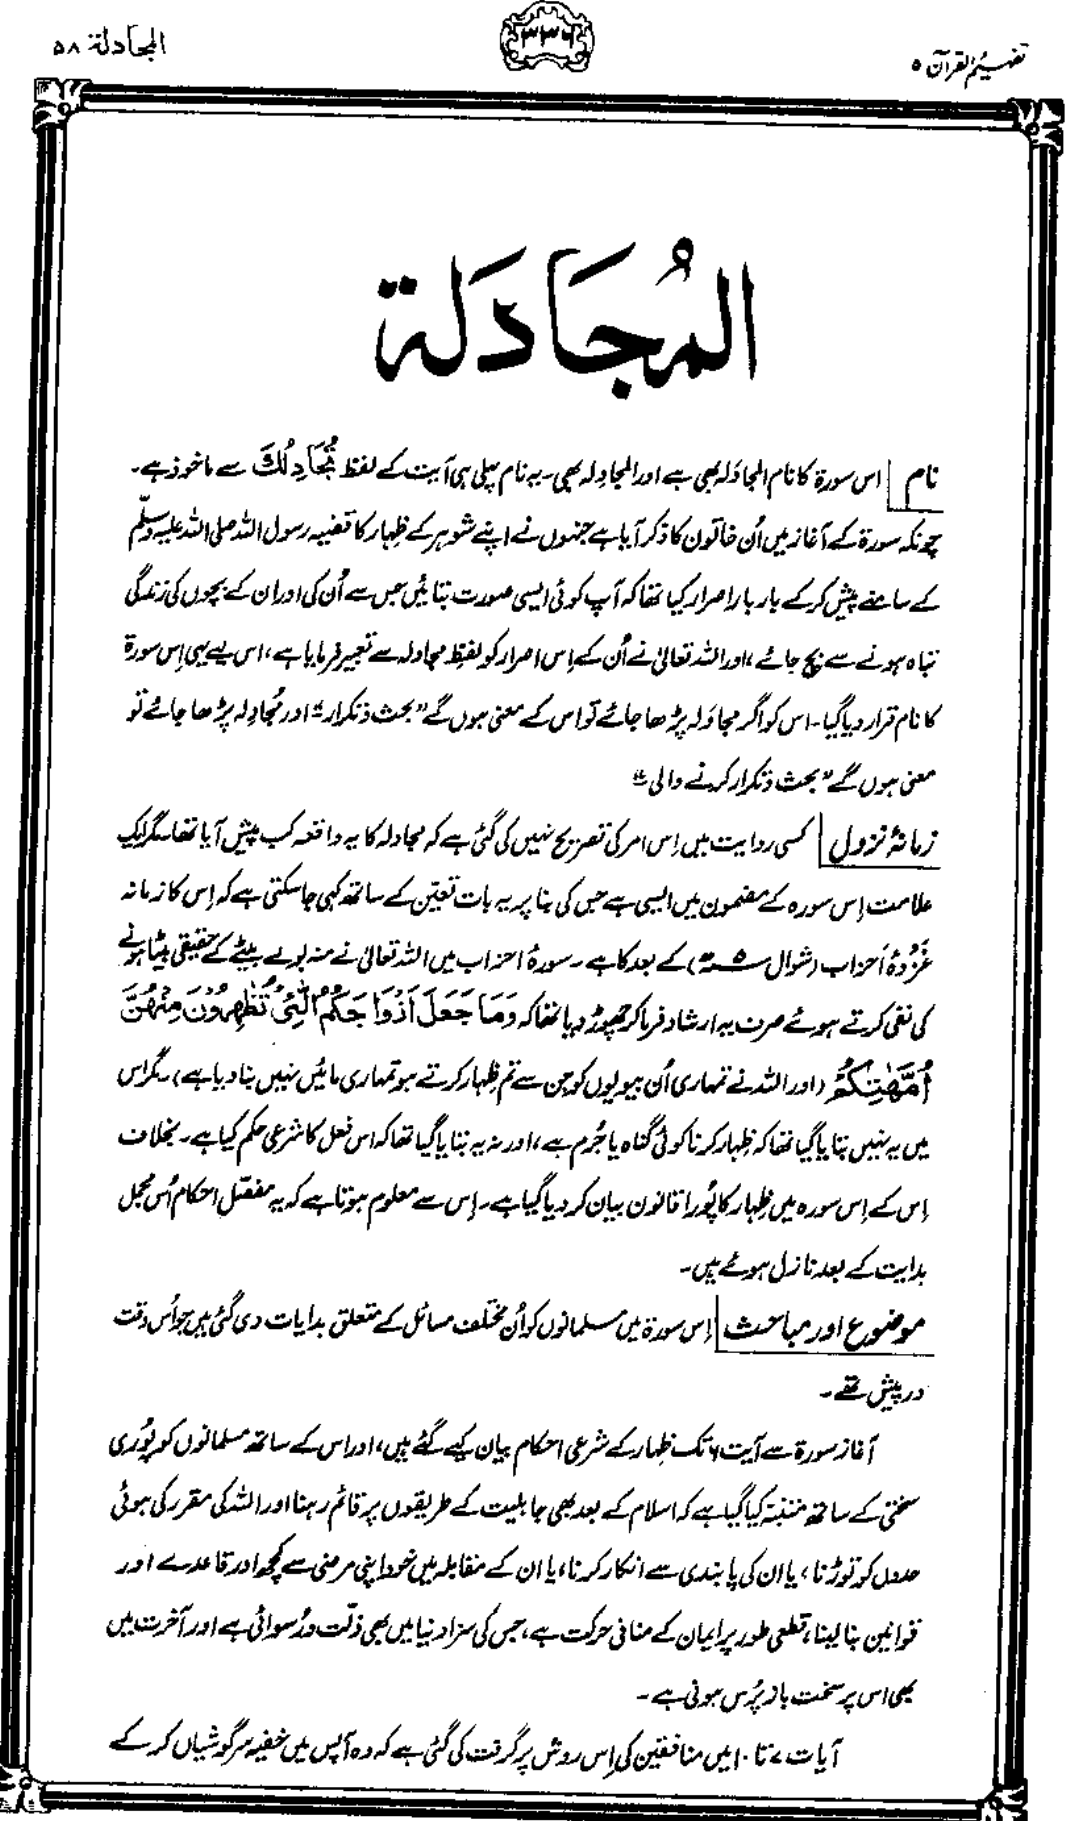 تفہیم القرآن ۵
۳۳۶
المجادلۃ ۵۸
المُجَادَلۃ
نام | اس سورۃ کا نام المجادَلہ بھی ہے اور المجادِلہ بھی۔ یہ نام پہلی ہی آیت کے لفظ تُجَادِلُكَ سے ماخوذ ہے۔
چونکہ سورۃ کے آغاز میں اُن خاتون کا ذکر آیا ہے جنہوں نے اپنے شوہر کے ظِہار کا قضیہ رسول اللہ صلی اللہ علیہ وسلّم
کے سامنے پیش کر کے بار بار اصرار کیا تھا کہ آپ کوئی ایسی صورت بتائیں جس سے اُن کی اور ان کے بچوں کی زندگی
تباہ ہونے سے بچ جائے، اور اللہ تعالیٰ نے اُن کے اِس اصرار کو لفظِ مجادلہ سے تعبیر فرمایا ہے، اس لیے یہی اِس سورۃ
کا نام قرار دیا گیا۔ اس کو اگر مجادَلہ پڑھا جائے تو اس کے معنی ہوں گے ”بحث و تکرار“ اور مُجادِلہ پڑھا جائے تو
معنی ہوں گے ”بحث و تکرار کرنے والی“
زمانۂ نزول | کسی روایت میں اِس امر کی تصریح نہیں کی گئی ہے کہ مجادلہ کا یہ واقعہ کب پیش آیا تھا۔ مگر ایک
علامت اِس سورہ کے مضمون میں ایسی ہے جس کی بنا پر یہ بات تعیّن کے ساتھ کہی جا سکتی ہے کہ اِس کا زمانہ
غَزوۂ اَحزاب (شوال ۵ھ) کے بعد کا ہے۔ سورۂ احزاب میں اللہ تعالیٰ نے منہ بولے بیٹے کے حقیقی بیٹا ہونے
کی نفی کرتے ہوئے صرف یہ ارشاد فرما کر چھوڑ دیا تھا کہ وَمَا جَعَلَ اَزْوَاجَكُمُ الّٰٓئِیْ تُظٰهِرُوْنَ مِنْهُنَّ
اُمَّهٰتِكُمْ (اور اللہ نے تمہاری اُن بیویوں کو جن سے تم ظِہار کرتے ہو تمہاری مائیں نہیں بنا دیا ہے)۔ مگر اس
میں یہ نہیں بتایا گیا تھا کہ ظِہار کرنا کوئی گناہ یا جُرم ہے، اور نہ یہ بتایا گیا تھا کہ اس فعل کا شرعی حکم کیا ہے۔ بخلاف
اِس کے اِس سورہ میں ظِہار کا پُورا قانون بیان کر دیا گیا ہے۔ اِس سے معلوم ہوتا ہے کہ یہ مفصّل احکام اُس مجمل
ہدایت کے بعد نازل ہوئے ہیں۔
موضوع اور مباحث | اِس سورۃ میں مسلمانوں کو اُن مختلف مسائل کے متعلق ہدایات دی گئی ہیں جو اُس وقت
درپیش تھے۔
آغاز سورۃ سے آیت ۶ تک ظِہار کے شرعی احکام بیان کیے گئے ہیں، اور اس کے ساتھ مسلمانوں کو پُوری
سختی کے ساتھ متنبّہ کیا گیا ہے کہ اسلام کے بعد بھی جاہلیت کے طریقوں پر قائم رہنا اور اللہ کی مقرر کی ہوئی
حدوں کو توڑنا، یا ان کی پابندی سے انکار کرنا، یا ان کے مقابلہ میں خود اپنی مرضی سے کچھ اور قاعدے اور
قوانین بنا لینا، قطعی طور پر ایمان کے منافی حرکت ہے، جس کی سزا دنیا میں بھی ذلّت و رُسوائی ہے اور آخرت میں
بھی اس پر سخت باز پُرس ہونی ہے۔
آیات ۷ تا ۱۰ میں منافقین کی اِس روش پر گرفت کی گئی ہے کہ وہ آپس میں خفیہ سرگوشیاں کر کے